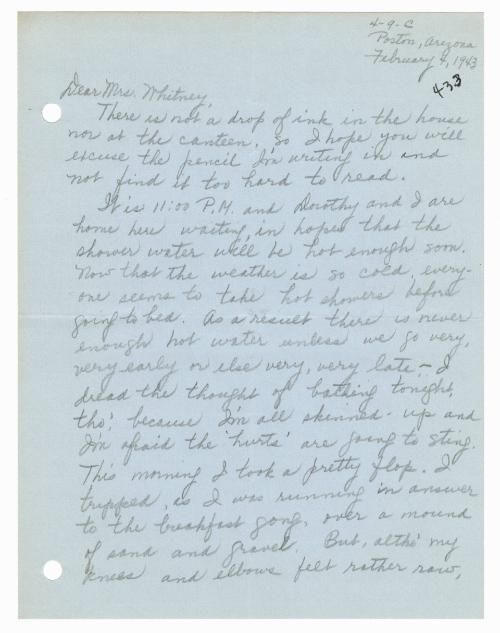 4-9-C
Poston, Arizona
February 4, 1943
433
Dear Mrs. Whitney,
There is not a drop of ink in the house
nor at the canteen, so I hope you will
excuse the pencil I'm writing in and
not find it too hard to read.
It is 11:00 P.M. and Dorothy and I are
home here waiting in hopes that the
shower water will be hot enough soon.
Now that the weather is so cold, every-
one seems to take hot showers before
going to bed. As a result there is never
enough hot water unless we go very,
very early or else very, very late - I
dread the thought of bathing tonight,
tho', because I'm all skinned-up and
I'm afraid the 'hurts' are going to sting.
This morning I took a pretty flop. I
tripped, as I was running in answer
to the breakfast gong, over a mound
of sand and gravel. But, altho' my
knees and elbows felt rather raw,